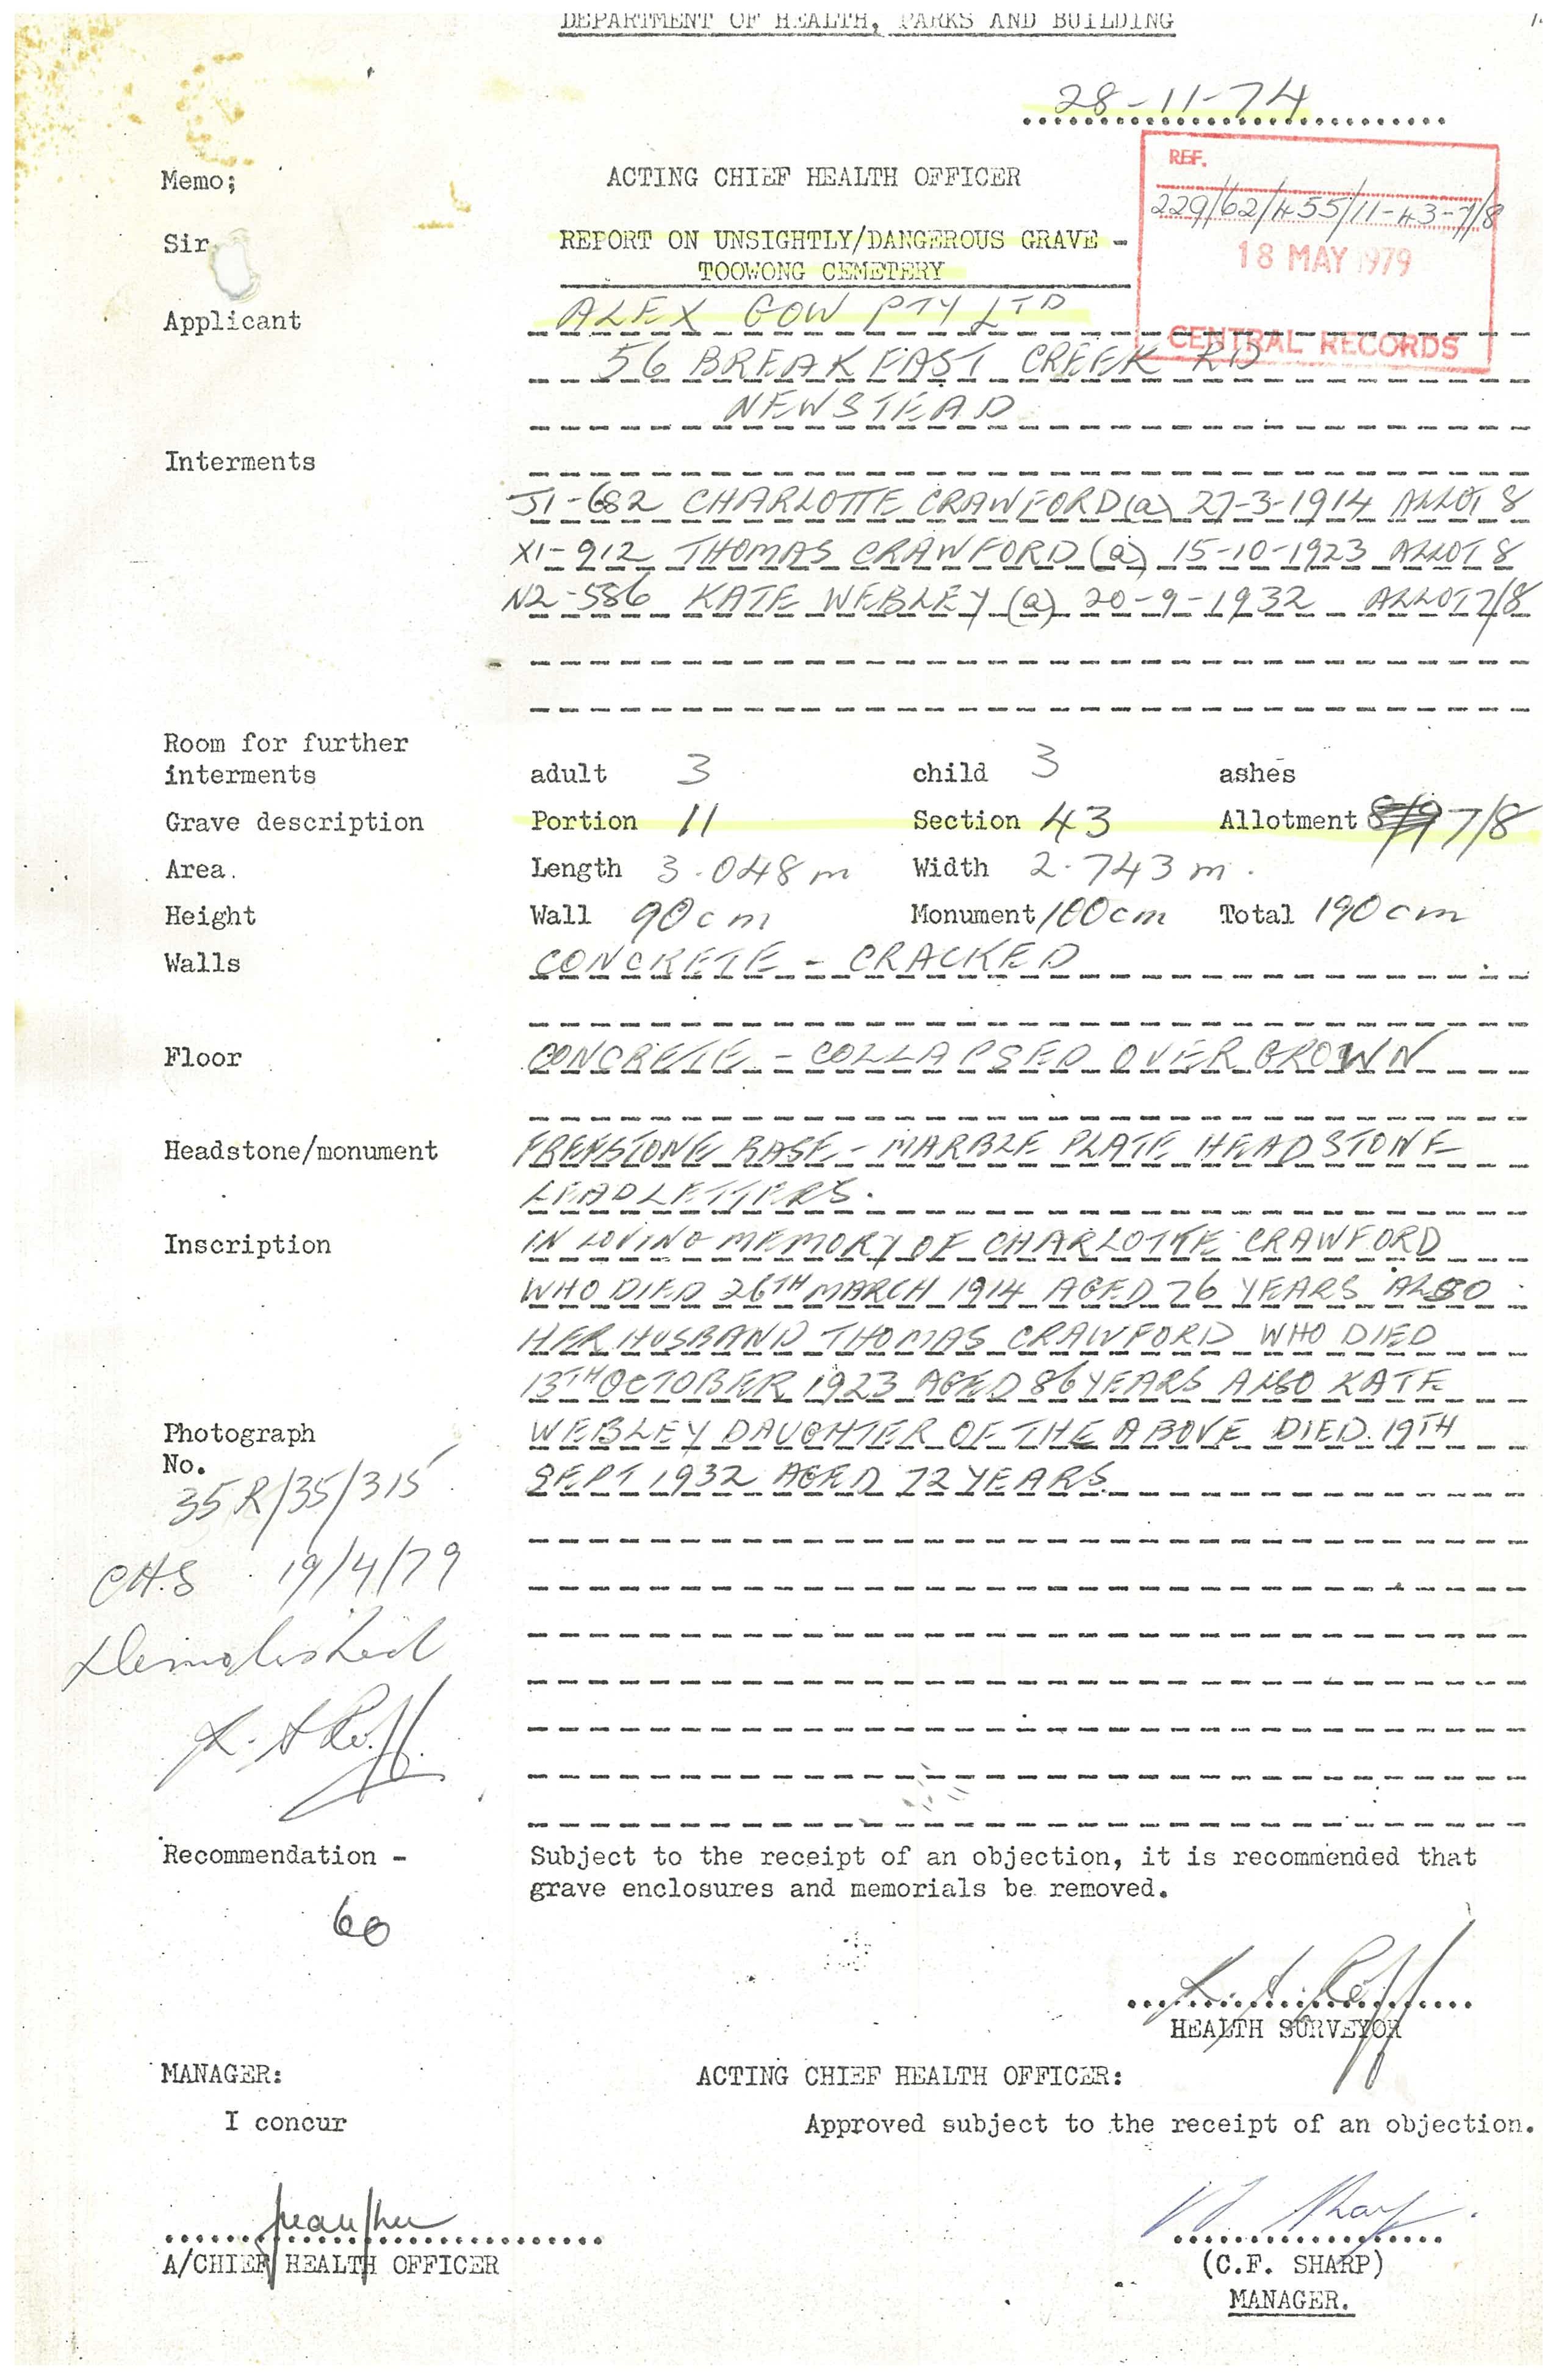 DEPARTMENT OF HEALTH, PARKS AND BUILDING
28-11-74
REF.
229/62/455/11-43-7/8
18 MAY 1979
CENTRAL RECORDS
Memo; ACTING CHIEF HEALTH OFFICER
Sir REPORT ON UNSIGHTLY/DANGEROUS GRAVE -
TOOWONG CEMETERY
Applicant ALEX GOW PTY LTD
56 BREAKFAST CREEK RD
NEWSTEAD
Interments
J1-682 CHARLOTTE CRAWFORD (a) 27-3-1914 ALLOT 8
X1-912 THOMAS CRAWFORD (a) 15-10-1923 ALLOT 8
N2-586 KATE WEBLEY (a) 20-9-1932 ALLOT 7/8
Room for further
interments adult 3 child 3 ashes
Grave description Portion 11 Section 43 Allotment 8/9 7/8
Area. Length 3.048m Width 2.743m.
Height Wall 90cm Monument 100cm Total 190cm
Walls CONCRETE - CRACKED
Floor CONCRETE - COLLAPSED OVERGROWN
Headstone/monument FREESTONE BASE - MARBLE PLATE HEADSTONE
LEAD LETTERS.
Inscription IN LOVING MEMORY OF CHARLOTTE CRAWFORD
WHO DIED 26TH MARCH 1914 AGED 76 YEARS ALSO
HER HUSBAND THOMAS CRAWFORD WHO DIED
13TH OCTOBER 1923 AGED 86 YEARS ALSO KATE
Photograph WEBLEY DAUGHTER OF THE ABOVE DIED 19TH
No. SEPT 1932 AGED 72 YEARS.
35R/35/315
CH.S 19/4/79
Demolished
Recommendation - Subject to the receipt of an objection, it is recommended that
grave enclosures and memorials be removed.
60
HEALTH SURVEYOR
MANAGER: ACTING CHIEF HEALTH OFFICER:
I concur Approved subject to the receipt of an objection.
A/CHIEF HEALTH OFFICER (C.F. SHARP)
MANAGER.